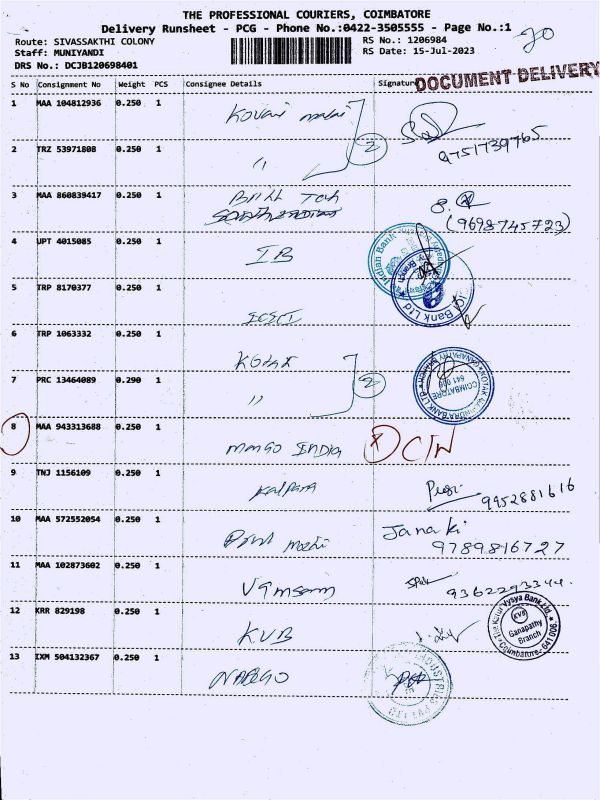 THE PROFESSIONAL COURIERS, COIMBATORE
Delivery Runsheet - PCG - Phone No.:0422-3505555 - Page No.:1
20
Route: SIVASSAKTHI COLONY
RS No.: 1206984
Staff: MUNIYANDI
RS Date: 15-Jul-2023
DRS No.: DCJB120698401
DOCUMENT DELIVERY
S No Consignment No Weight PCS Consignee Details Signature
1 MAA 104812936 0.250 1 Kovai malai
2
9751739765
2 TRZ 53971808 0.250 1 "
3 MAA 860839417 0.250 1 Brill Tek
(9698745723)
4 UPT 4015085 0.250 1 IB
Indian Bank
5 TRP 8170377 0.250 1 ICICI
Bank Ltd
6 TRP 1063332 0.250 1 KOTAK
2
7 PRC 13464089 0.290 1 "
KOTAK MAHINDRA BANK LTD
GANAPATHY BRANCH
COIMBATORE
641 006
8 MAA 943313688 0.250 1 Mango INDIA
X C/N
9 TNJ 1156109 0.250 1 Kalpana
9952881616
10 MAA 572552054 0.250 1
Janaki
9789816727
11 MAA 102873602 0.250 1 Vamsam
9362293344
12 KRR 829198 0.250 1 KVB
The Karur Vysya Bank Ltd.
KVB
Ganapathy
Branch
Coimbatore - 641 006
13 IXM 504132367 0.250 1
INDUSTRIES PVT LTD